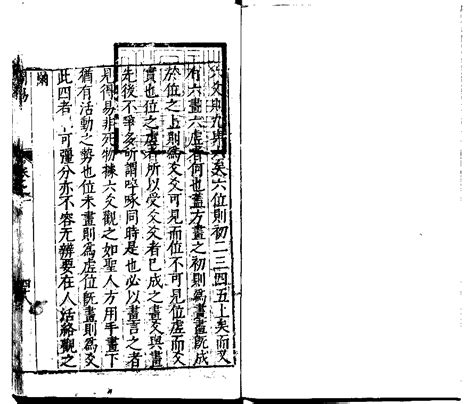 六爻則九與六矣六位則初二三四五上矣而又
有六畫六虛者何也蓋方畫之初則為畫畫既成
於位之上則為爻爻可見而位不可見位虛而爻
實也位之虛者所以受爻爻者已成之畫爻與畫
先後不爭多所謂啐啄同時是也必以畫言之者
見得易非死物據六爻觀之如聖人方用手畫下
猶有活動之勢也位未畫則為虛位既畫則為爻
此四者 可彊分亦不容无辨要在人活絡觀之